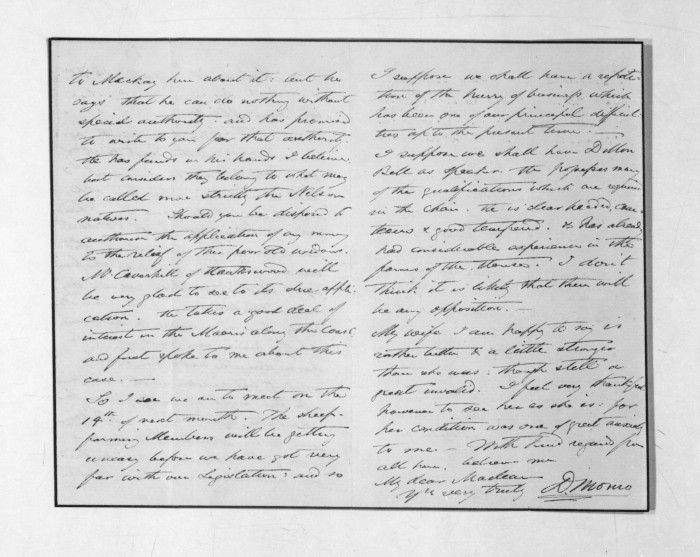 to Mackay here about it: but he
says that he can do nothing without
special authority: and has promised
to write to you for that authority.
He has funds in his hands I believe,
but considers they belong to what may
be called more strictly the Nelson
natives. Should you be disposed to
authorise the application of any money
to the relief of this poor old widow.
Mr Caverhill of Hawkswood will
be very glad to see to its due appli-
cation. He takes a good deal of
interest in the Maoris along this coast
and first spoke to me about this
case. —
So I see we are to meet on the
14th of next month. The sheep-
farming Members will be getting
uneasy before we have got very
far with our Legislation: and so
I suppose we shall have a repeti-
tion of the hurry of business, which
has been one of our principal difficul-
ties up to the present time. —
I suppose we shall have Dillon
Bell as speaker. He possesses many
of the qualifications which are required
in the Chair. He is clear headed, cour-
teous & good tempered. & has already
had considerable experience in the
forms of the House. I don't
think it is likely that there will
be any opposition. —
My wife I am happy to say is
rather better & a little stronger
than she was: though still a
great invalid. I feel very thankful
however to see her as she is: for
her condition was one of great anxiety
to me — With kind regards from
all here, believe me
My dear Maclean
Yrs very truly D. Monro